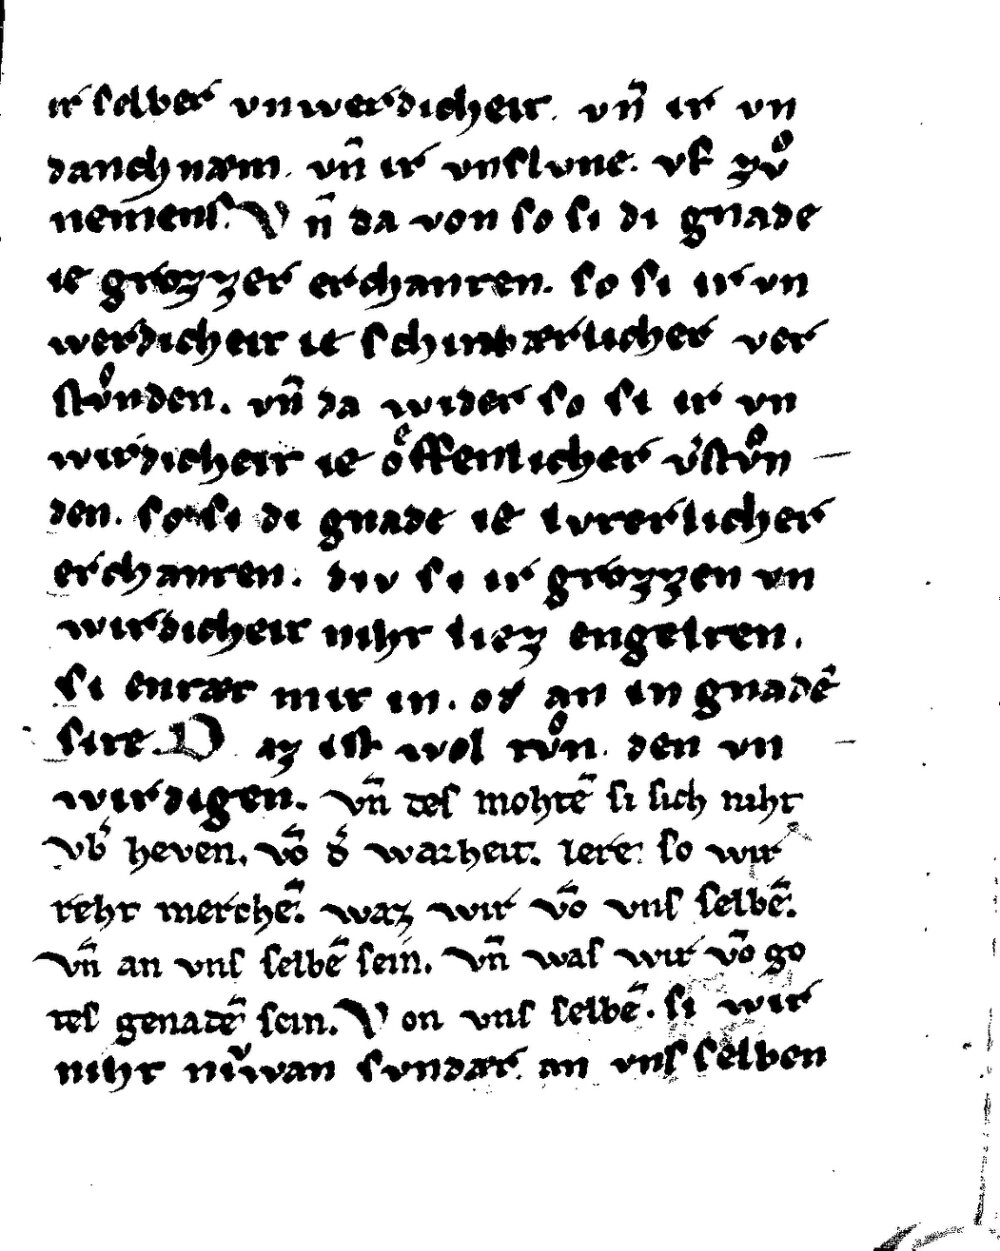 ir selber vnwerdicheit. vn̄ ir vn
danchnæm. vn̄ ir vnslvne. vf zvͦ
nemens. Vn̄ da von so si di gnade
ie grozzer erchanten. so si ir vn
werdicheit ie schinbærlicher ver
stvͦnden. vn̄ da wider so si ir vn
wirdicheit ie oͤffenlicher v̓stvͦn
den. so si di gnade ie lvterlicher
erchanten. div si ir grozzen vn
wirdicheit niht liez engelten.
si entæt mir in. od̓ an in gnadē
site. Daz ist wol tvͦn. den vn
wirdigen. vn̄ tes mohtē si sich niht
vb̓ heven. vō d̓ warheit. lere. so wir
reht merchē. waz wir vō vns selbē.
vn̄ an vns selbē sein. vn̄ was wir vō go
tes genatē sein. Von vns selbē. si wir
niht nv̓wan svndær. an vns selben